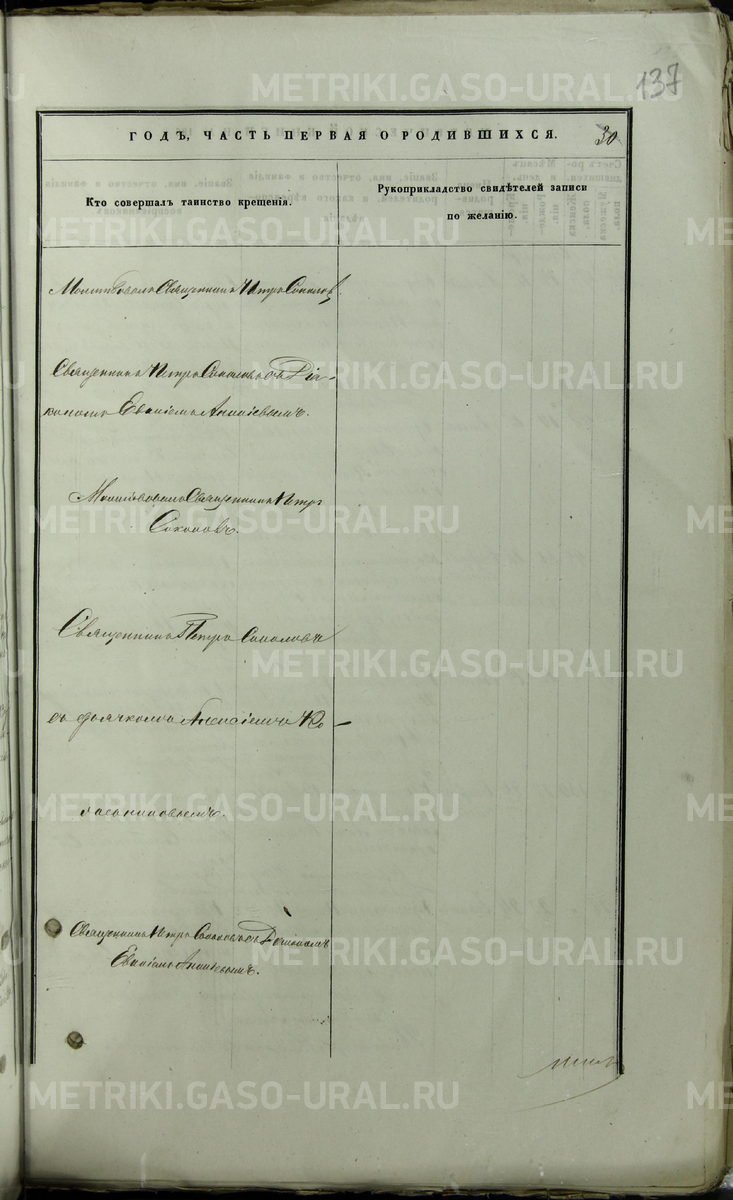 137
ГОДЪ, ЧАСТЬ ПЕРВАЯ О РОДИВШИХСЯ.
30
Кто совершалъ таинство крещенія.
Рукоприкладство свидѣтелей записи
по желанію.
Молитвовалъ Священникъ Петръ Соколовъ.
Священникъ Петръ Соколовъ съ Діа-
кономъ Ананіевымъ.
Молитвовалъ Священникъ Петръ
Соколовъ.
Священникъ Петръ Соколовъ
съ дьячкомъ
Священникъ Петръ Соколовъ съ Діакономъ
Ананіевымъ.
METRIKI.GASO-URAL.RU